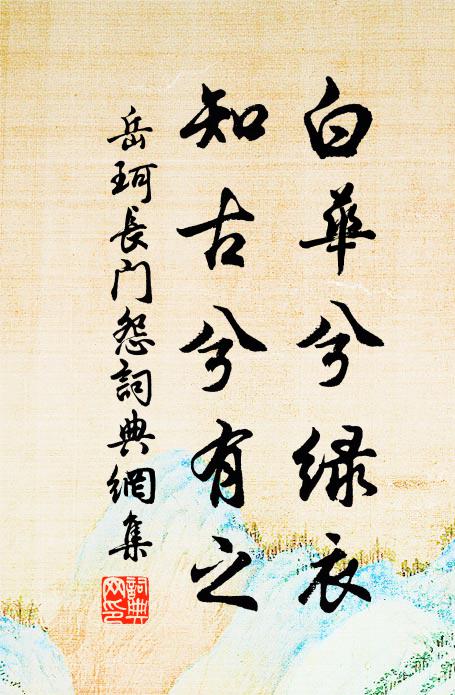 白華兮緑衣
知古兮有之
岳珂長門怨詞典網集